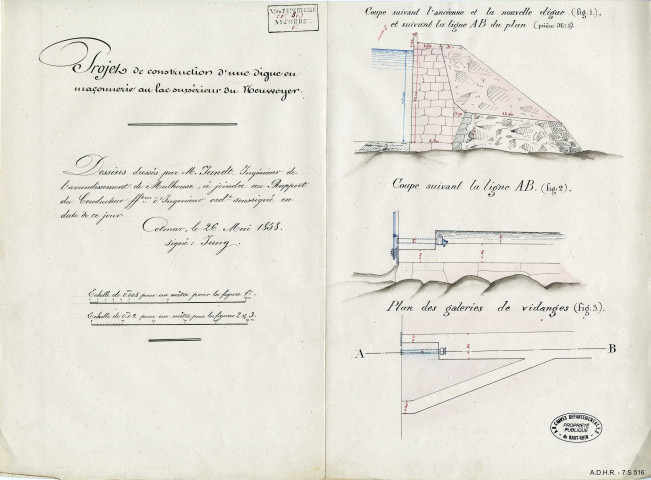 Projet de construction d'une digue en
maçonnerie au lac supérieur du Neuweyer.
Dessins dressés par M. Jundt, Ingénieur de
l'arrondissement de Mulhouse, à joindre au Rapport
du Conducteur ff.ons d'Ingénieur ord. soussigné en
date de ce jour.
Colmar, le 26 Mai 1858.
signé: Jung.
Echelle de 0,005 pour un mètre pour la figure 1re.
Echelle de 0,02 pour un mètre pour les figures 2 & 3.
Coupe suivant l'ancienne et la nouvelle digue (fig: 1.).
et suivant la ligne AB du plan (pièce No: 3).
Coupe suivant la ligne AB. (fig: 2).
Plan des galeries de vidanges (fig: 3.).
A
B
PROPRIÉTÉ
PUBLIQUE
du HAUT-RHIN
A.D.H.R. - 7 S 516